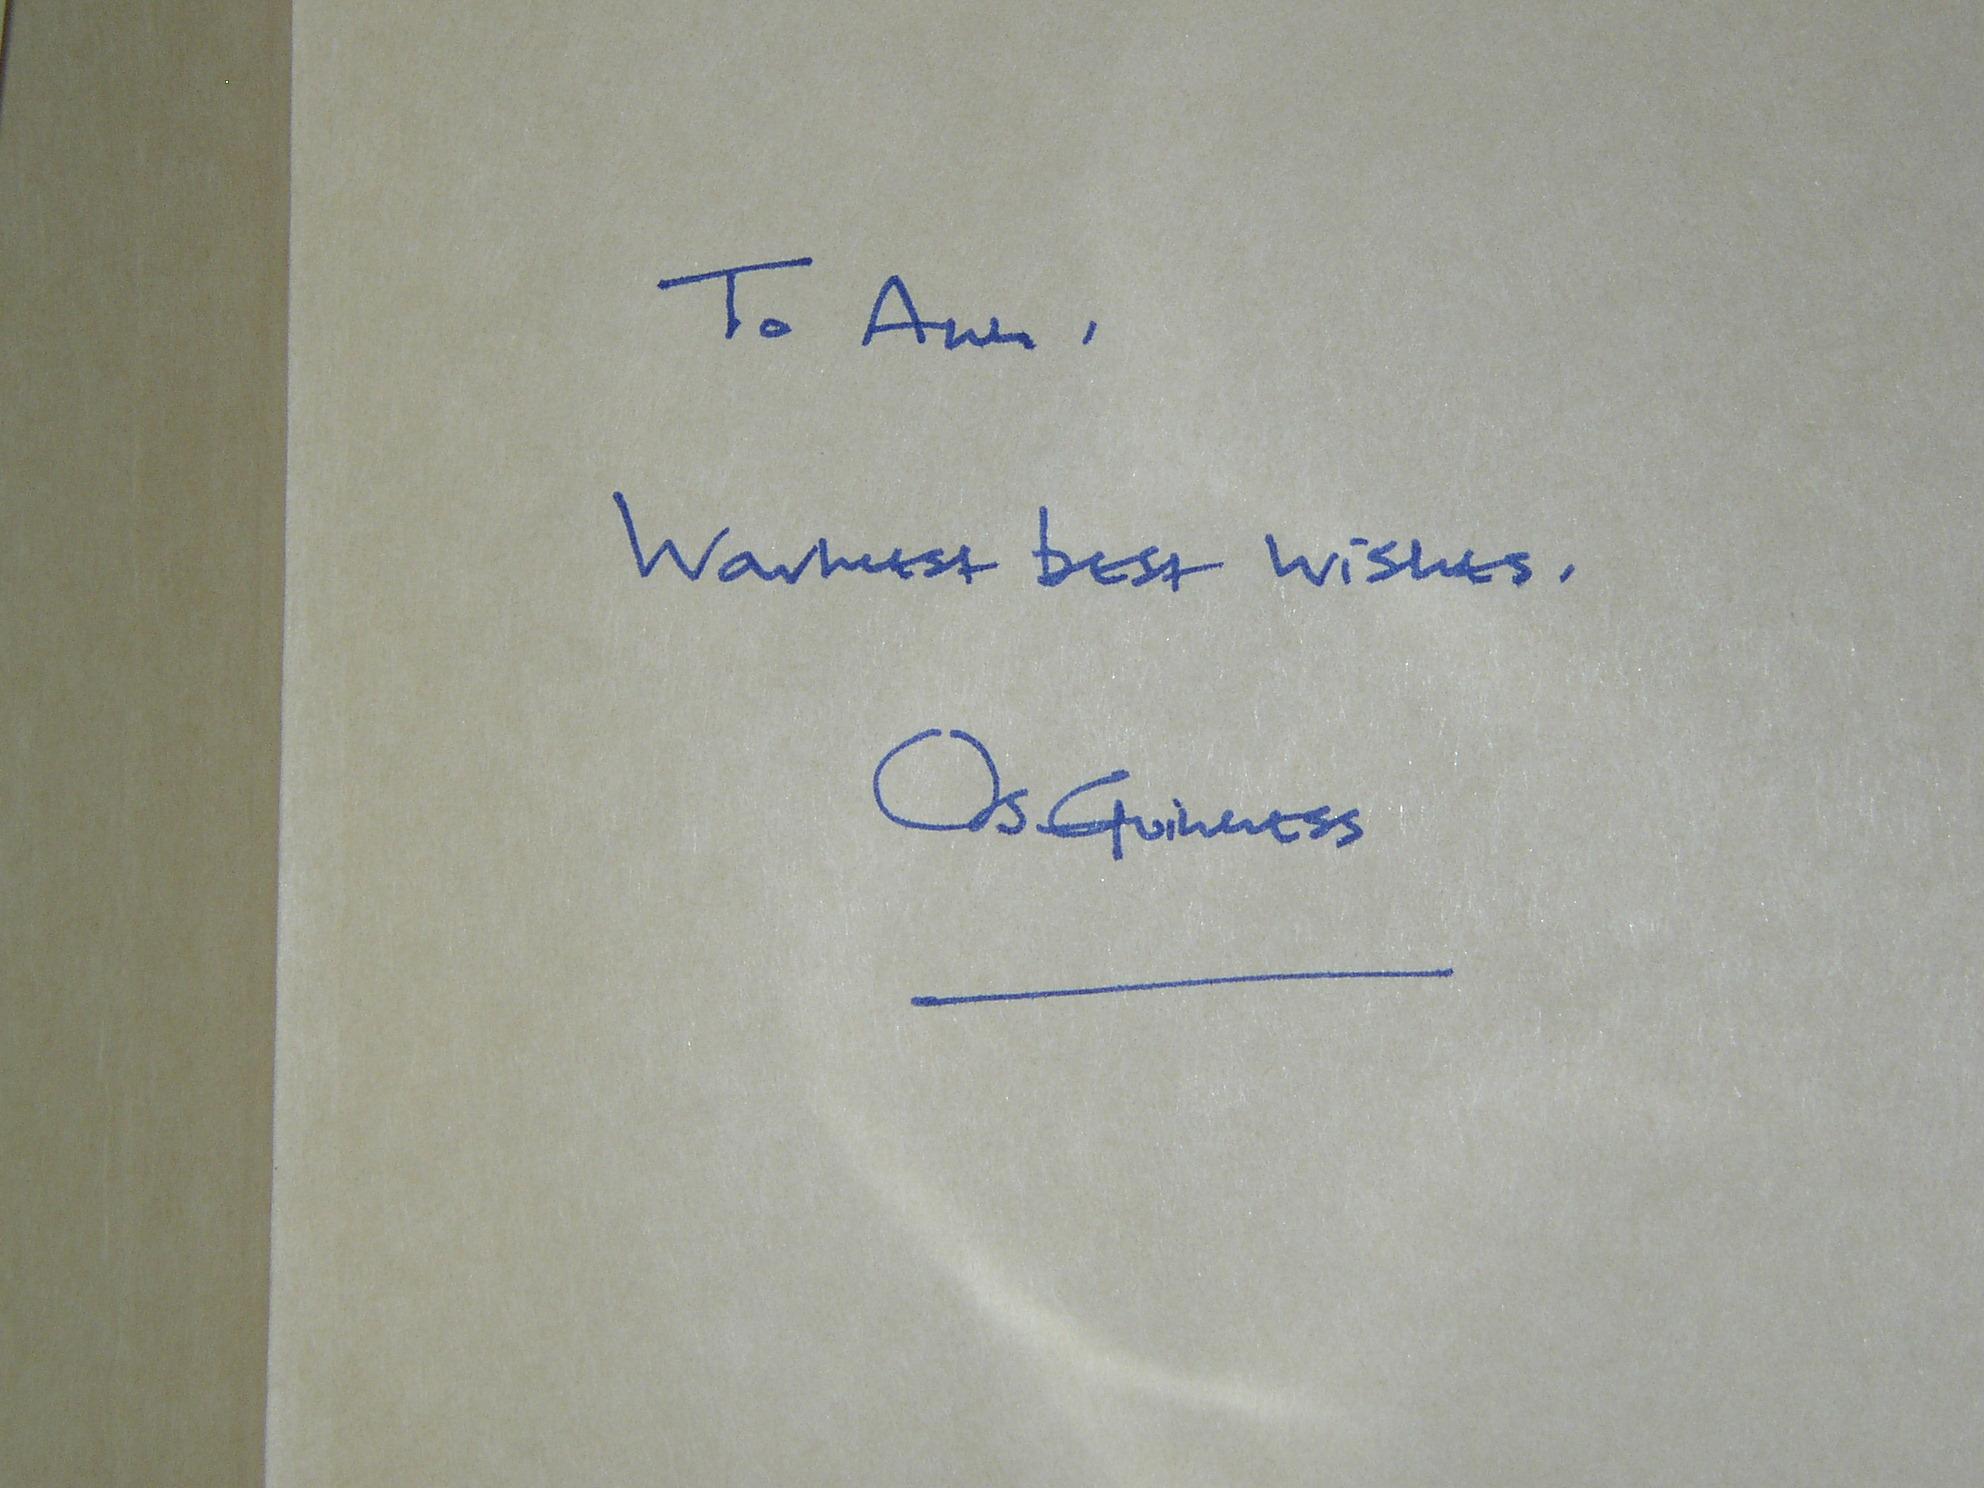 To Ann,
Warmest best wishes,
Os Guinness